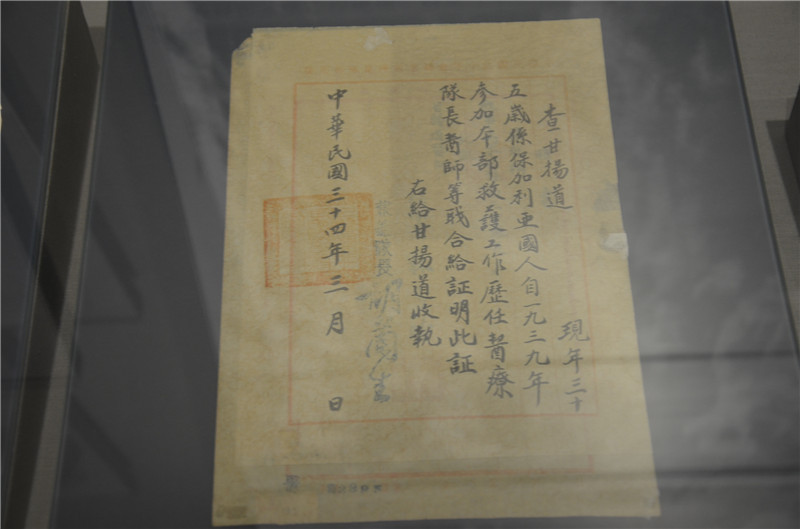 查甘揚道　現年三十
五歲係保加利亜國人自一九三九年
參加本部救護工作歷任醫療
隊長醫師等職合給証明此証
右給甘揚道收執
隊長
中華民國三十四年三月　日